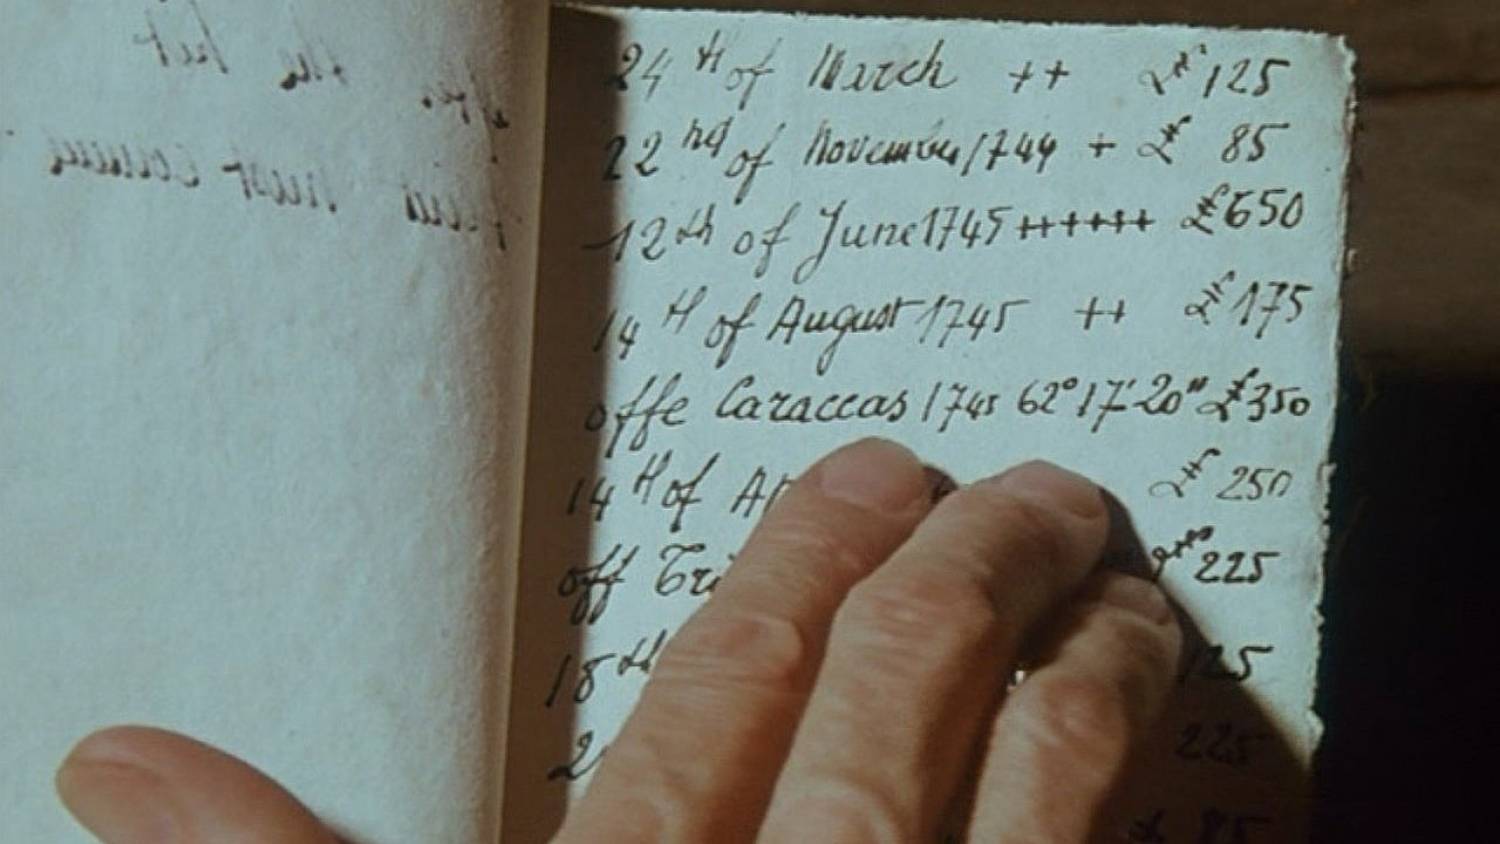 24th of March ++ £ 125
22nd of November 1744 + £ 85
12th of June 1745 ++++++ £ 650
14th of August 1745 ++ £ 175
offe Caraccas 1745 62° 17' 20" £ 350
14th of £ 250
off £ 225
18th 125
225
85